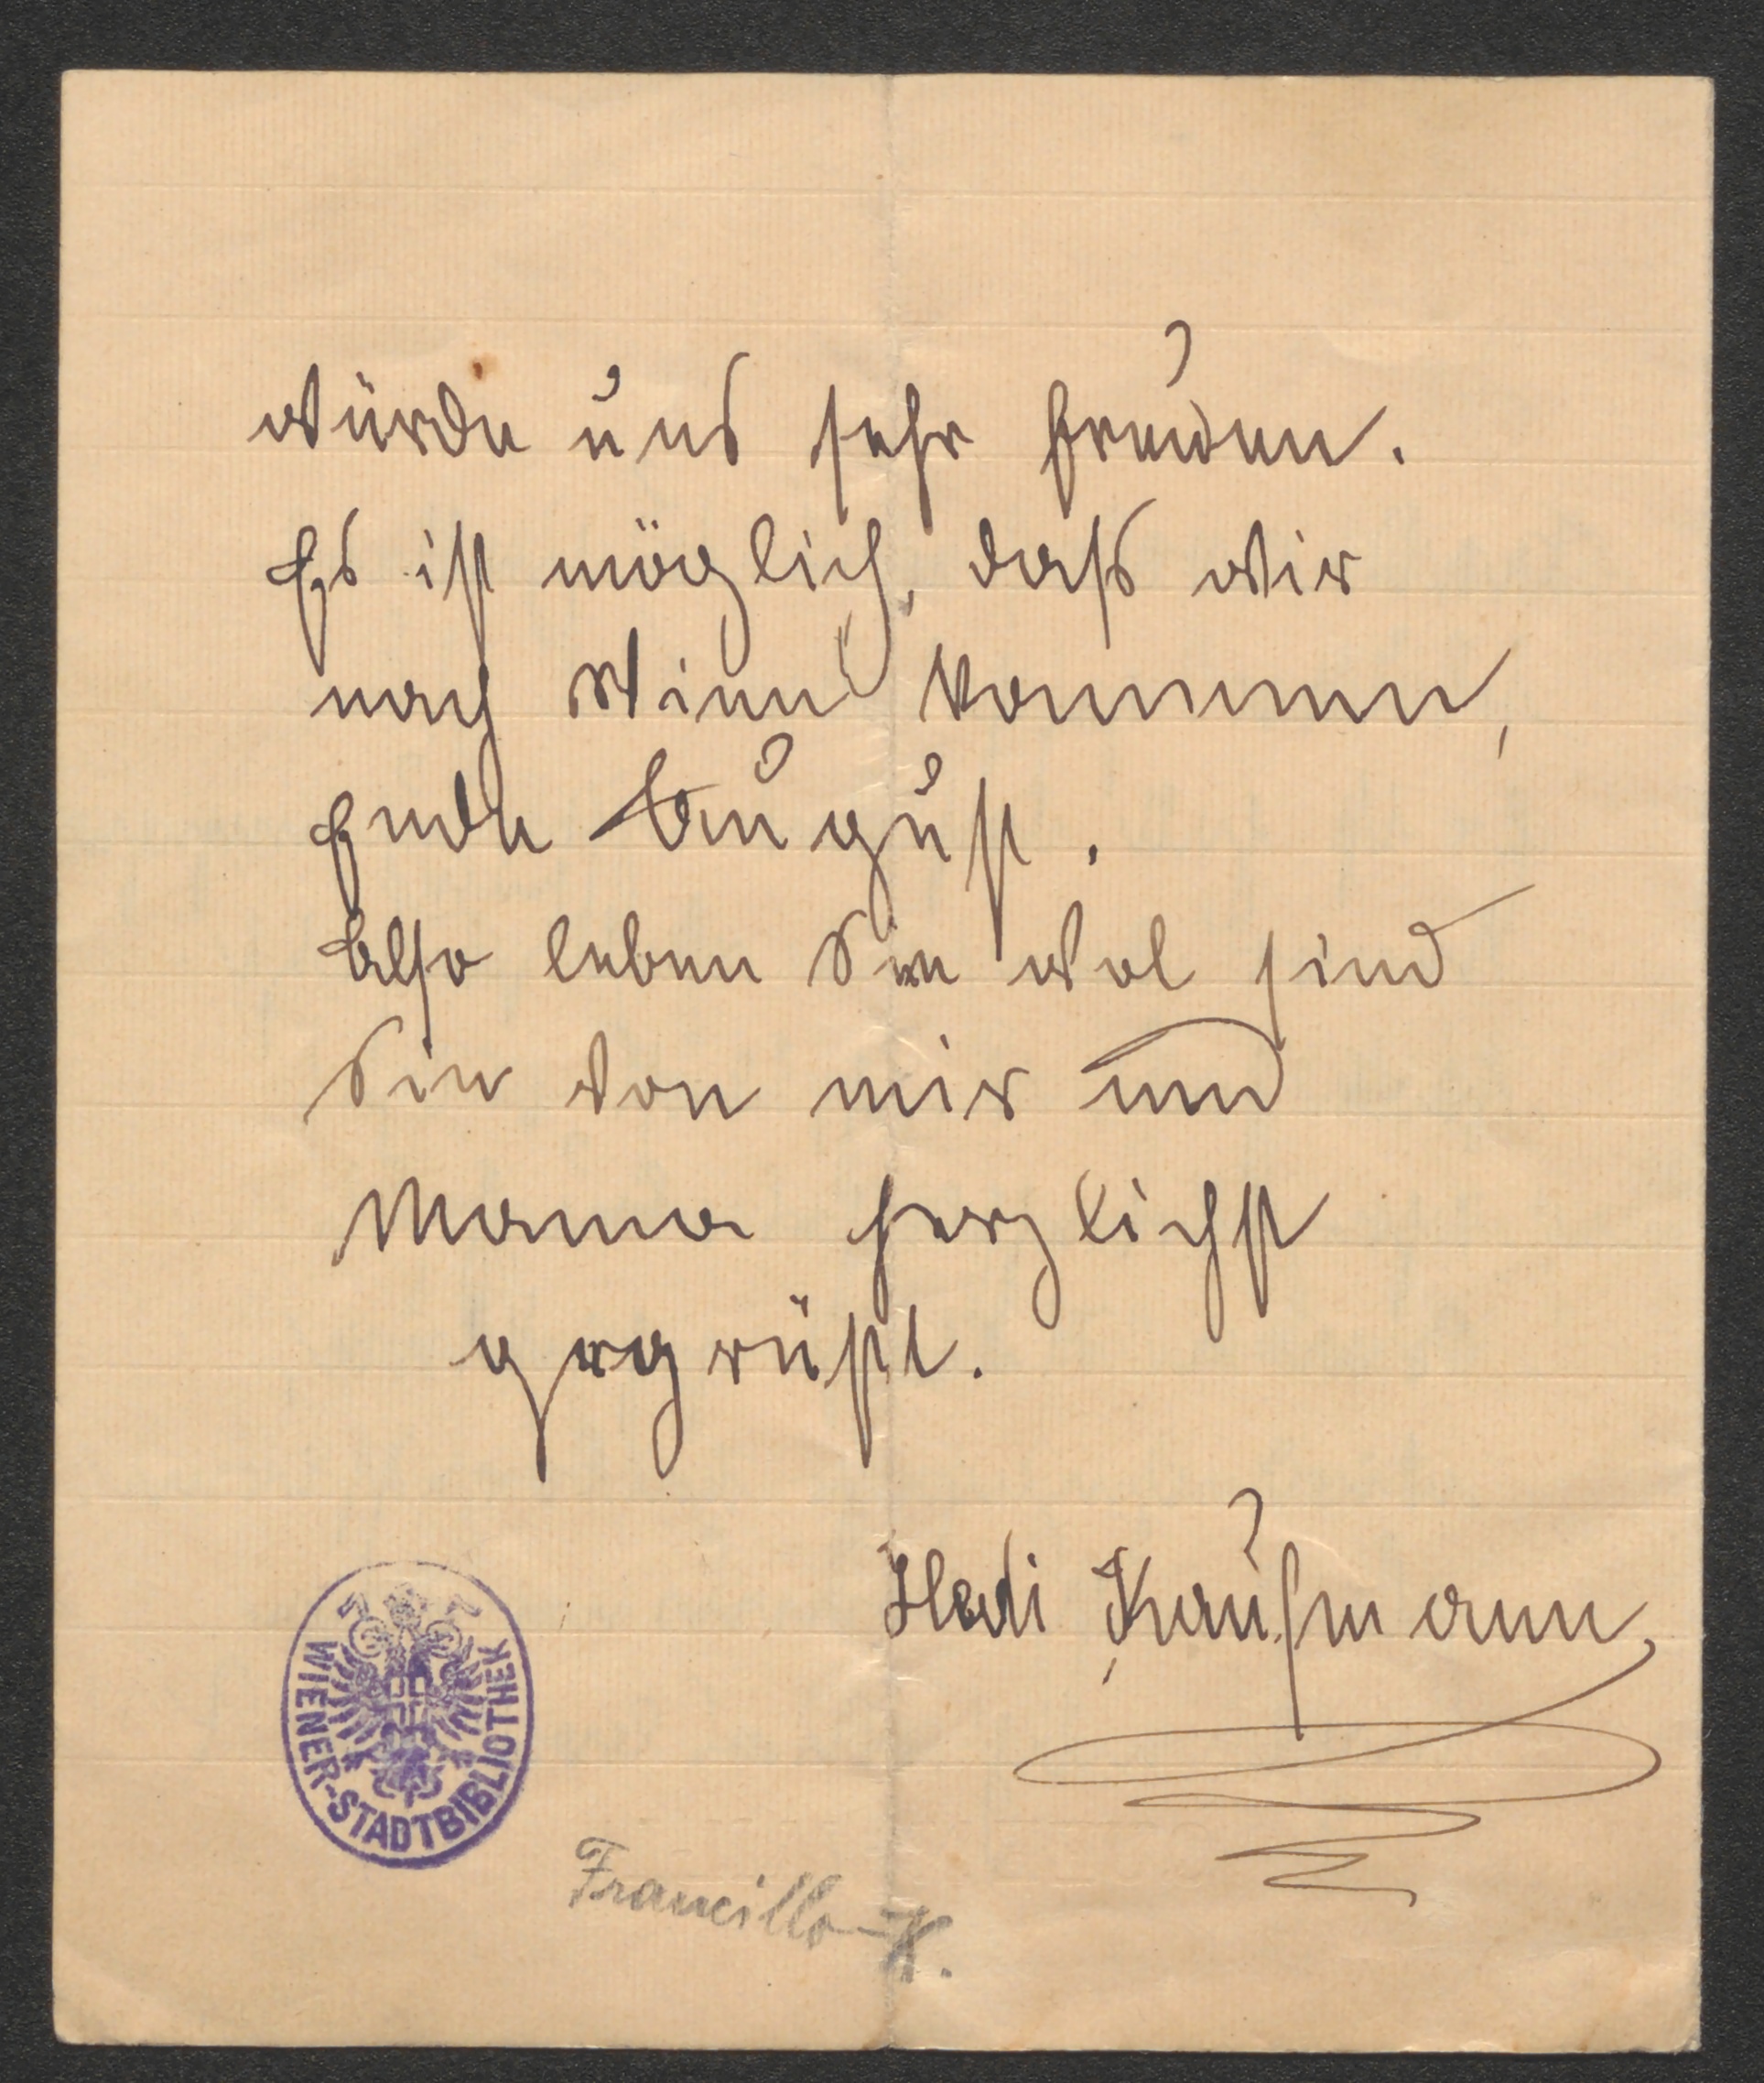 würde uns sehr freuen.
Es ist möglich, daß wir
nach Wien kommen,
Ende August.
Also leben Sie wol sind
Sie von mir und
Mama herzlichst
gegrüßt.
Hedi Kaufmann
WIENER-STADTBIBLIOTHEK
Francillo-K.